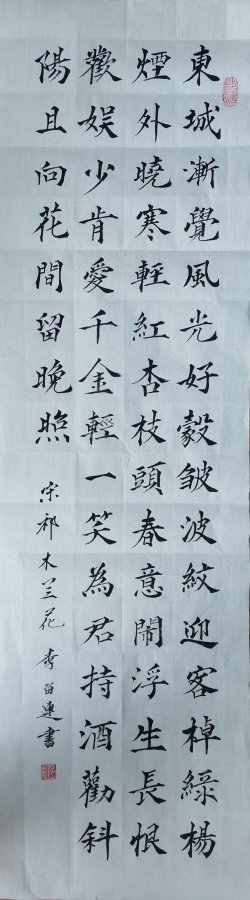 東城漸覺風光好縠皺波紋迎客棹綠楊
煙外曉寒輕紅杏枝頭春意鬧浮生長恨
歡娛少肯愛千金輕一笑為君持酒勸斜
陽且向花間留晚照
宋祁木兰花 連書